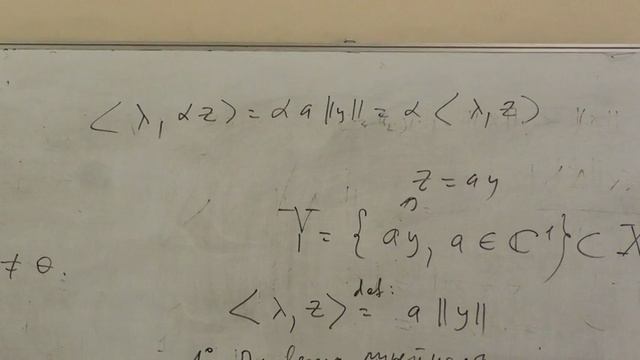 ⟨λ, αz⟩ = αa‖y‖ = α⟨λ, z⟩
z = ay
Y = { ay, a ∈ ℂ¹} ⊂ X
≠ θ.
⟨λ, z⟩ def: = a‖y‖
1°